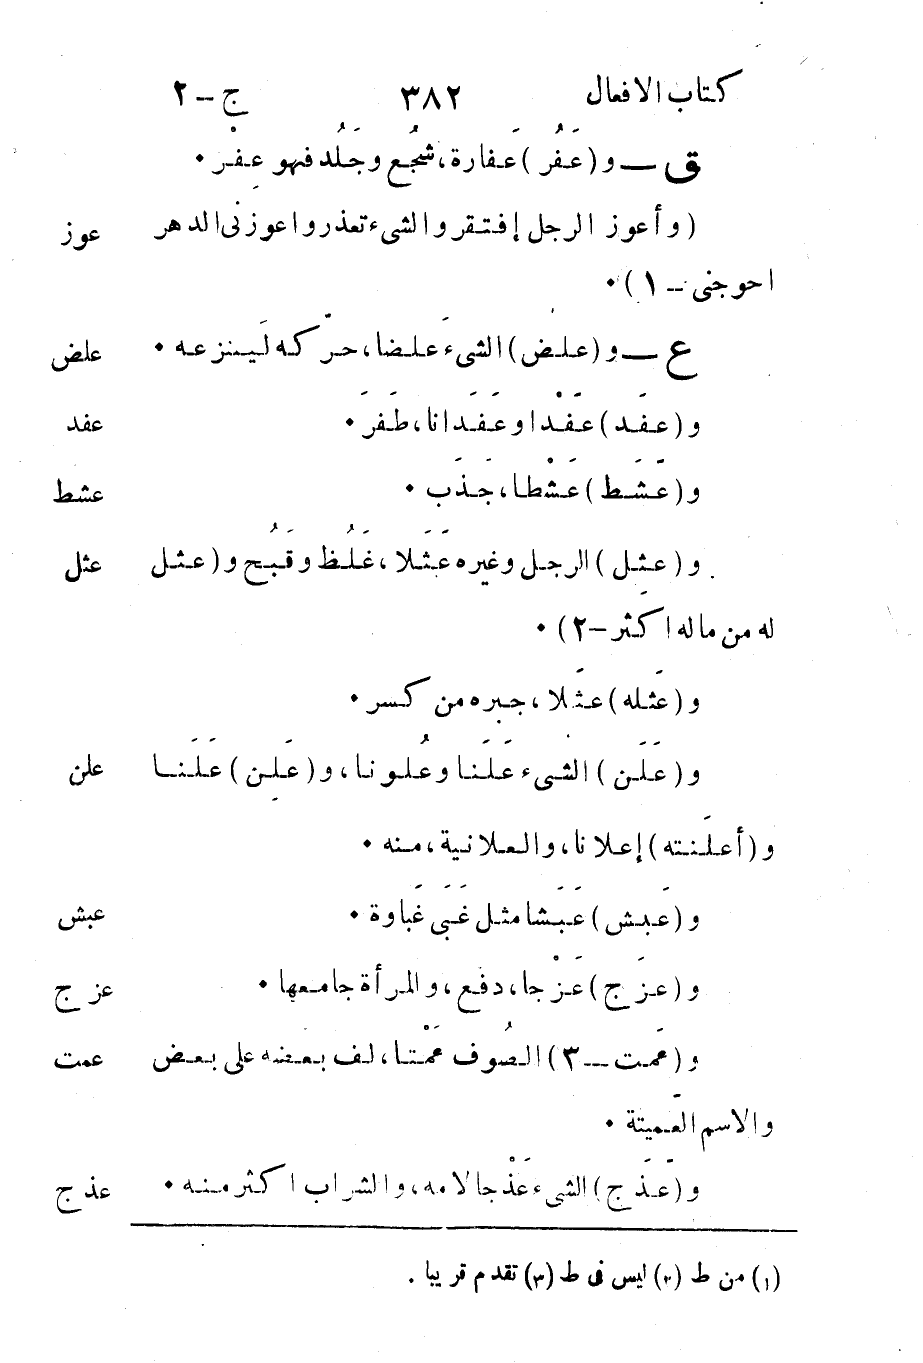 كتاب الافعال ٣٨٢ ج – ٢
ق — و (عَفُر) عَفارة، شجُع وجَلُد فهو عِفْر •
(وأعوز الرجل إفتقر والشىء تعذر واعوزنى الدهر عوز
احوجنى – ١) •
ع — و (علض) الشىء عَلضا، حرّكه لَينزعه • علض
و (عفَد) عَفْدا وعَفَدانا، طَفَرَ • عفد
و (عَشَط) عَشْطا، جَذَب • عشط
و (عثِل) الرجل وغيره عَثَلا، غَلُظ وقَبُح و (عثل عثل
له من ماله اكثر – ٢) •
و (عَثله) عثَلا، جبره من كسر •
و (عَلَن) الشىء عَلَنا وعُلونا، و (عَلِن) عَلَنا علن
و (أعلَنته) إعلانا، والعلانية، منه •
و (عَبش) عَبَشا مثل غَبَى غَباوة • عبش
و (عزَج) عَزْجا، دفع، والمرأة جامعها • عزج
و (عمَت – ٣) الصُوف عَمْتا، لف بعضه على بعض عمت
والاسم العَميتة •
و (عَذَج) الشىء عَذْجا لامه، والشراب اكثر منه • عذج
(١) من ط (٢) ليس فى ط (٣) تقدم قريبا .